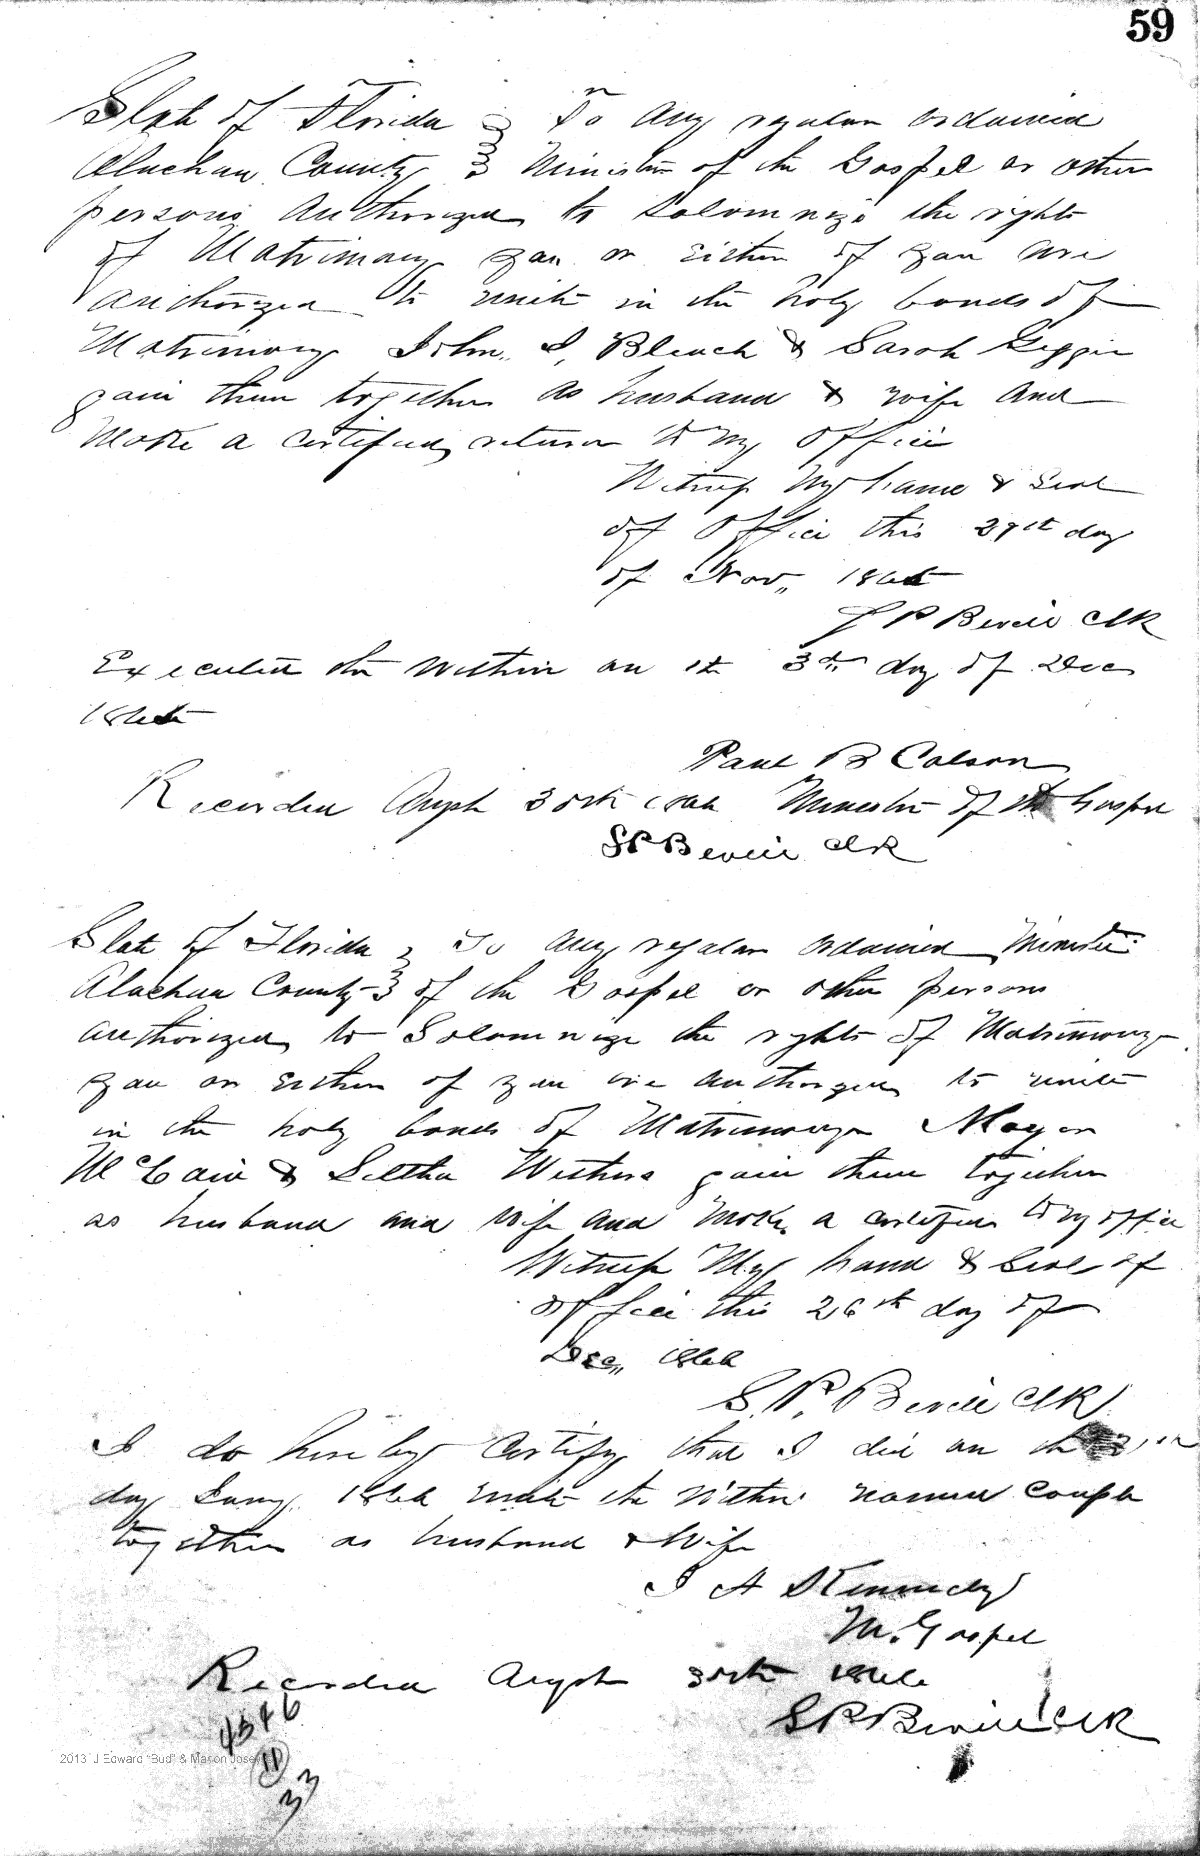 59
State of Florida } To any regular ordained
Alachua County } Minister of the Gospel or other
persons Authorized to Solomnize the rights
of Matrimony you or either of you are
authorized to unite in the holy bonds of
Matrimony John I, Bleach & Sarah
join them together as husband & wife and
Make a certified return to my office
Witness My hand & Seal
of Office this 29th day
of Nov,, 1865
S P Bevill Clk
Executed the within on the 3th day of Dec
1865
Paul B Colson
Recorded Augst 30th 1866 Minister of the Gospel
S P Bevill Clk
State of Florida } To any regular ordained Minister
Alachua County } of the Gospel or other persons
authorized to Solomnize the rights of Matrimony
you or either of you are authorized to unite
in the holy bonds of Matrimony
McCain & Withers join them together
as husband and wife and make a certified to my office
Witness My hand & Seal of
office this 26th day of
Dec,, 1866
S. P. Bevill Clk
I do hereby certify that I did on the
day Jany 1866 unite the within named couple
together as husband & Wife
J A Kennedy
M. Gospel
Recorded Augst 30th 1866
S P Bevill Clk
4546
11
33
2013 J Edward "Bud" & Marion